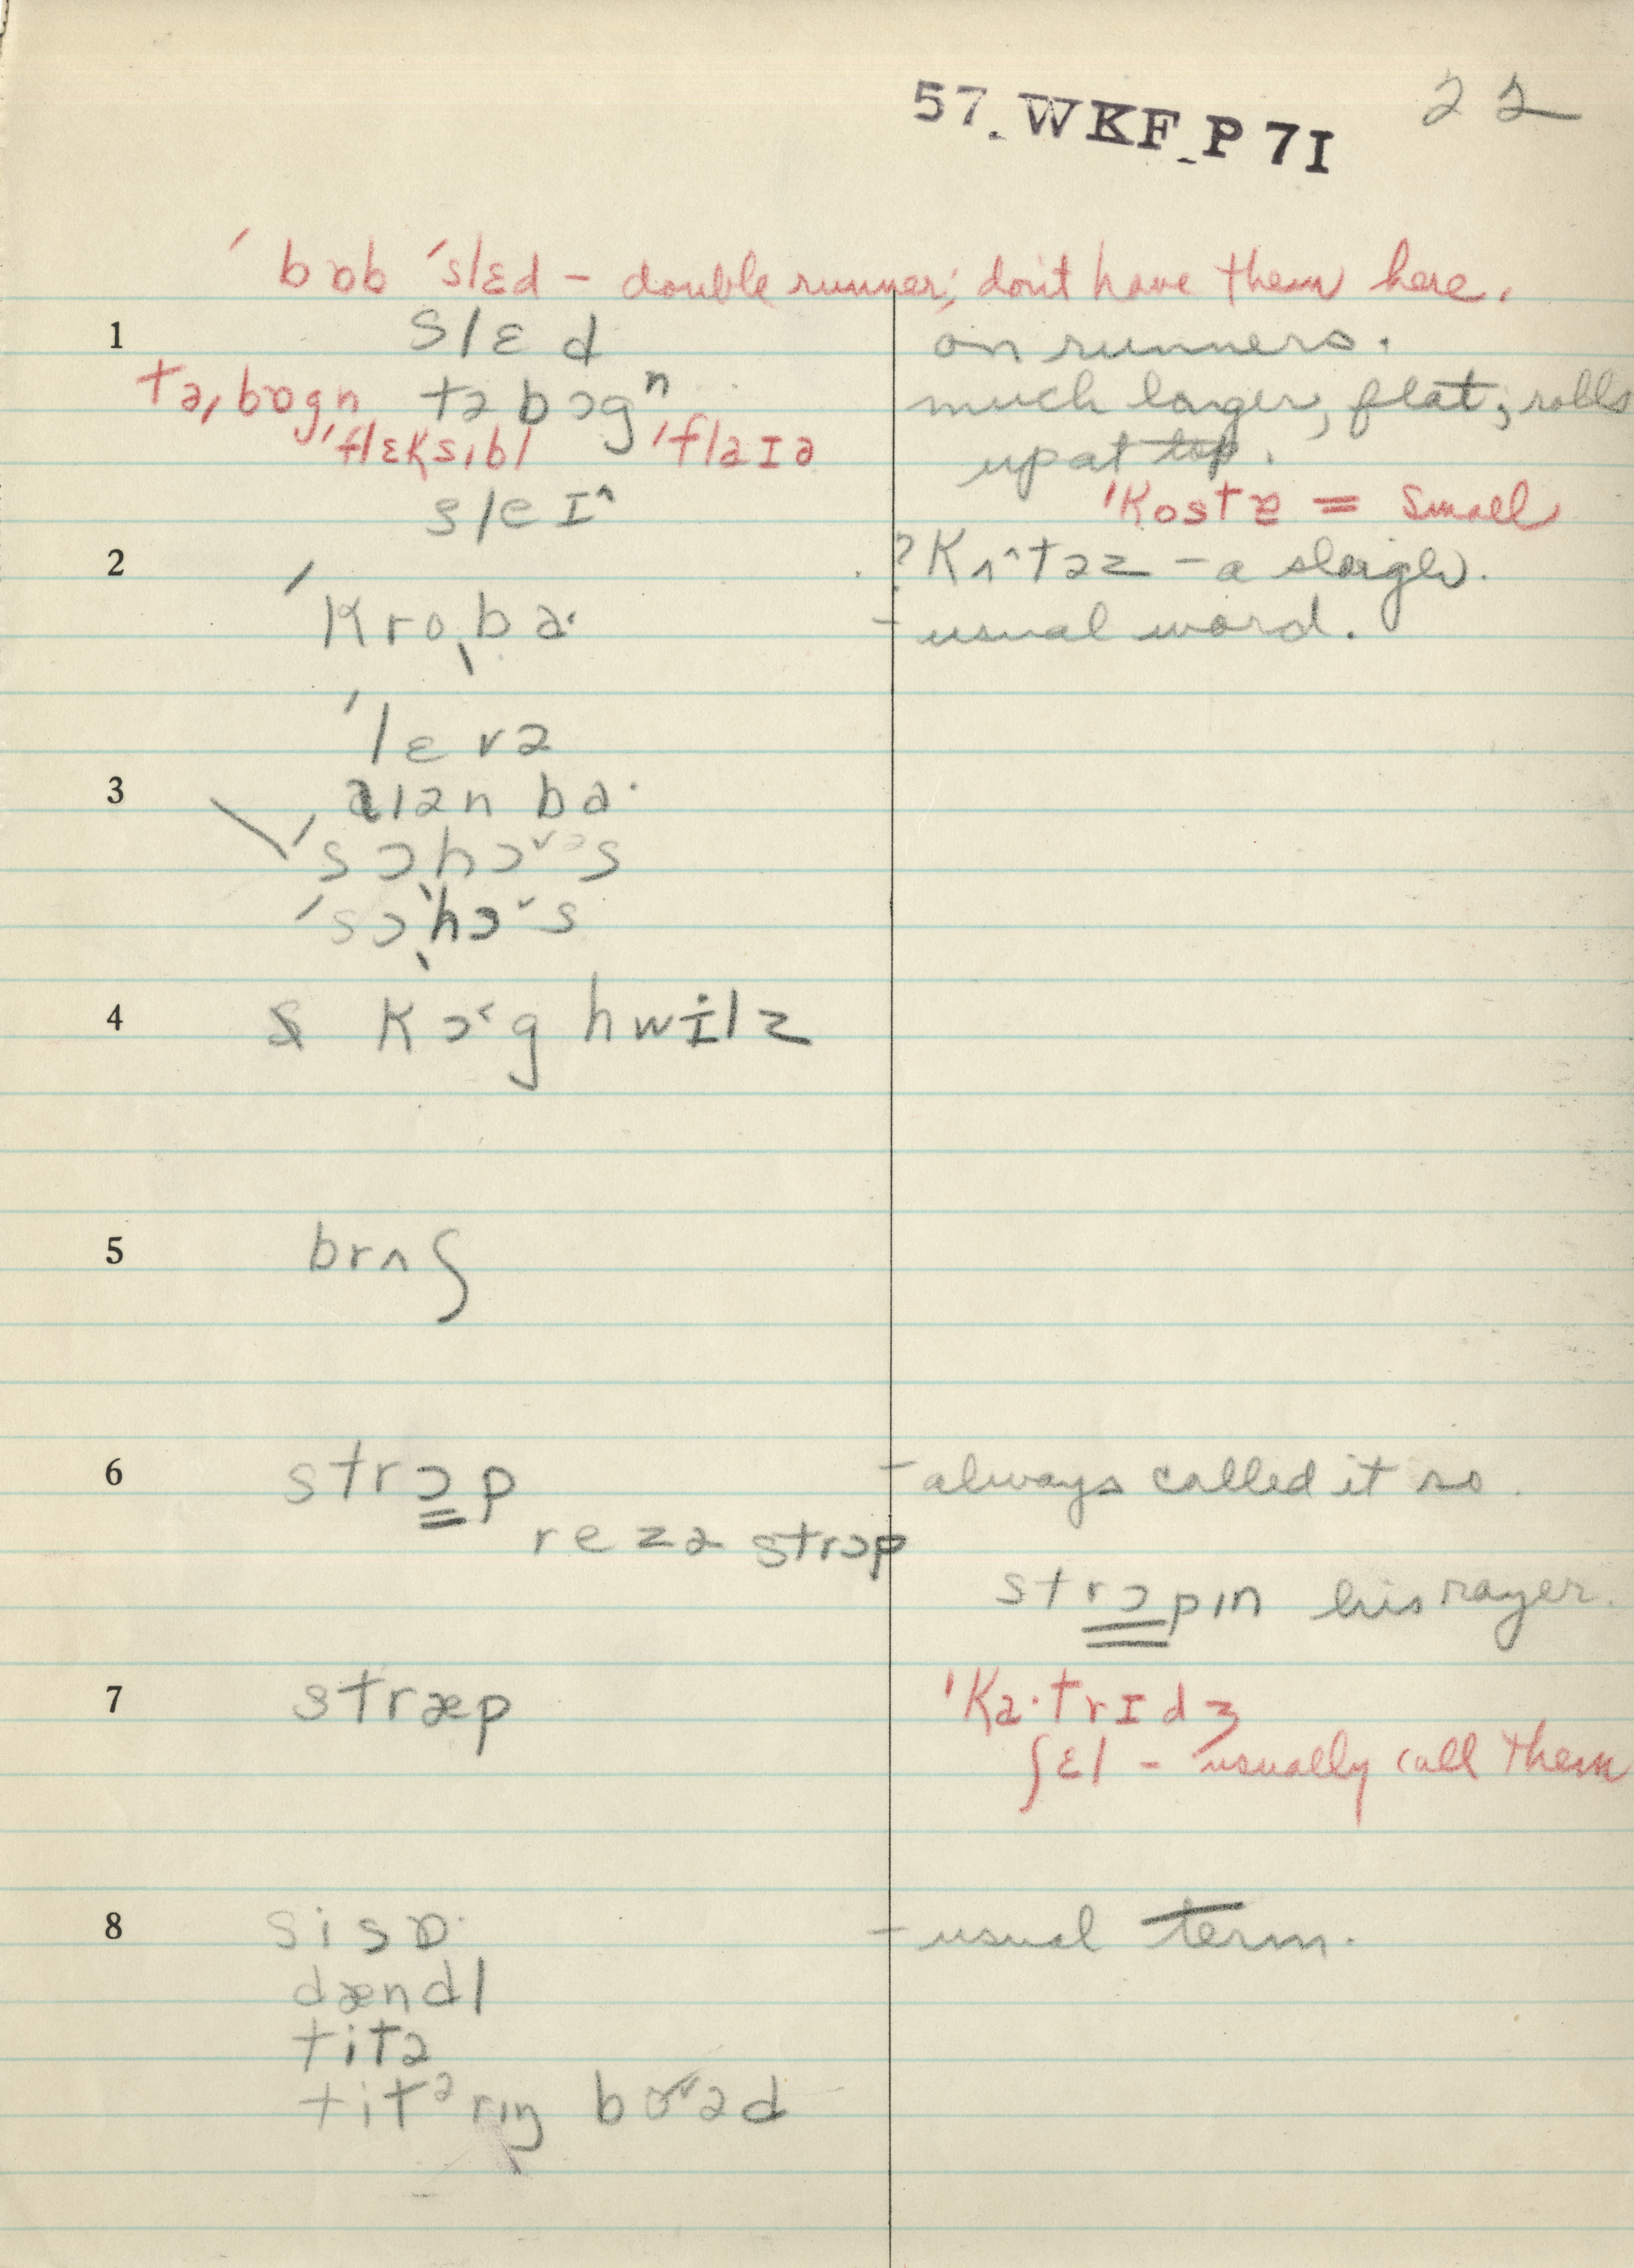 57. WKF_P 7I 22
ˈbɒb ˈslɛd – double runner; don't have them here.
1 slɛd on runners.
tə,bɒgn təbɔgⁿ much larger, flat; rolls
ˈflɛksɪbl ˈflaɪə up at top.
sleɪ^ ˈkostɚ = small
2 ? kʌ^təz – a sleigh.
ˈkroˌba· – usual word.
ˈlɛvə
3 aɪən ba·
ˈsɔˌhɔ˅ᵊs
ˈsɔˌhɔ˅s
4 kɔ˂g hwilz
5 brʌʃ
6 strɔp – always called it so.
rezə strɔp
strɔpɪn his razer.
7 stræp ˈka·trɪdʒ
ʃɛl – usually call them
8 sisɒ· – usual term.
dændl
titə
titᵊrɪŋ bo˅əd